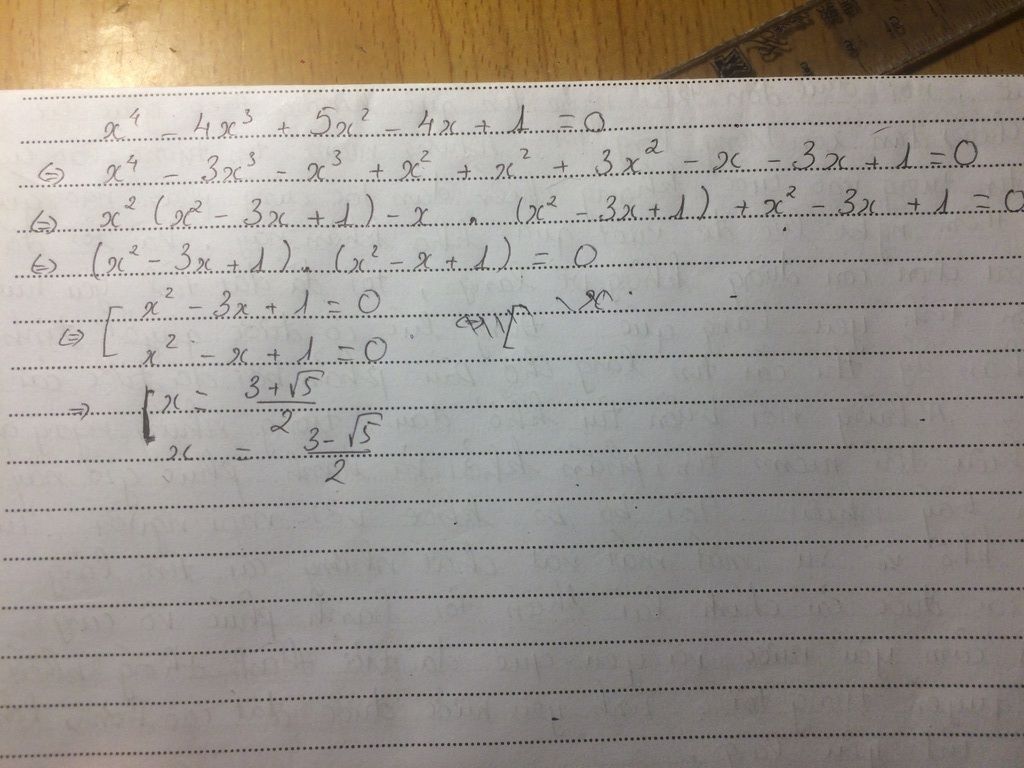 x⁴ - 4x³ + 5x² - 4x + 1 = 0
⇔ x⁴ - 3x³ - x³ + x² + x² + 3x² - x - 3x + 1 = 0
⇔ x² (x² - 3x + 1) - x . (x² - 3x + 1) + x² - 3x + 1 = 0
⇔ (x² - 3x + 1) . (x² - x + 1) = 0
⇔ [ x² - 3x + 1 = 0
x² - x + 1 = 0
⇒ [ x = (3 + √5)/2
x = (3 - √5)/2